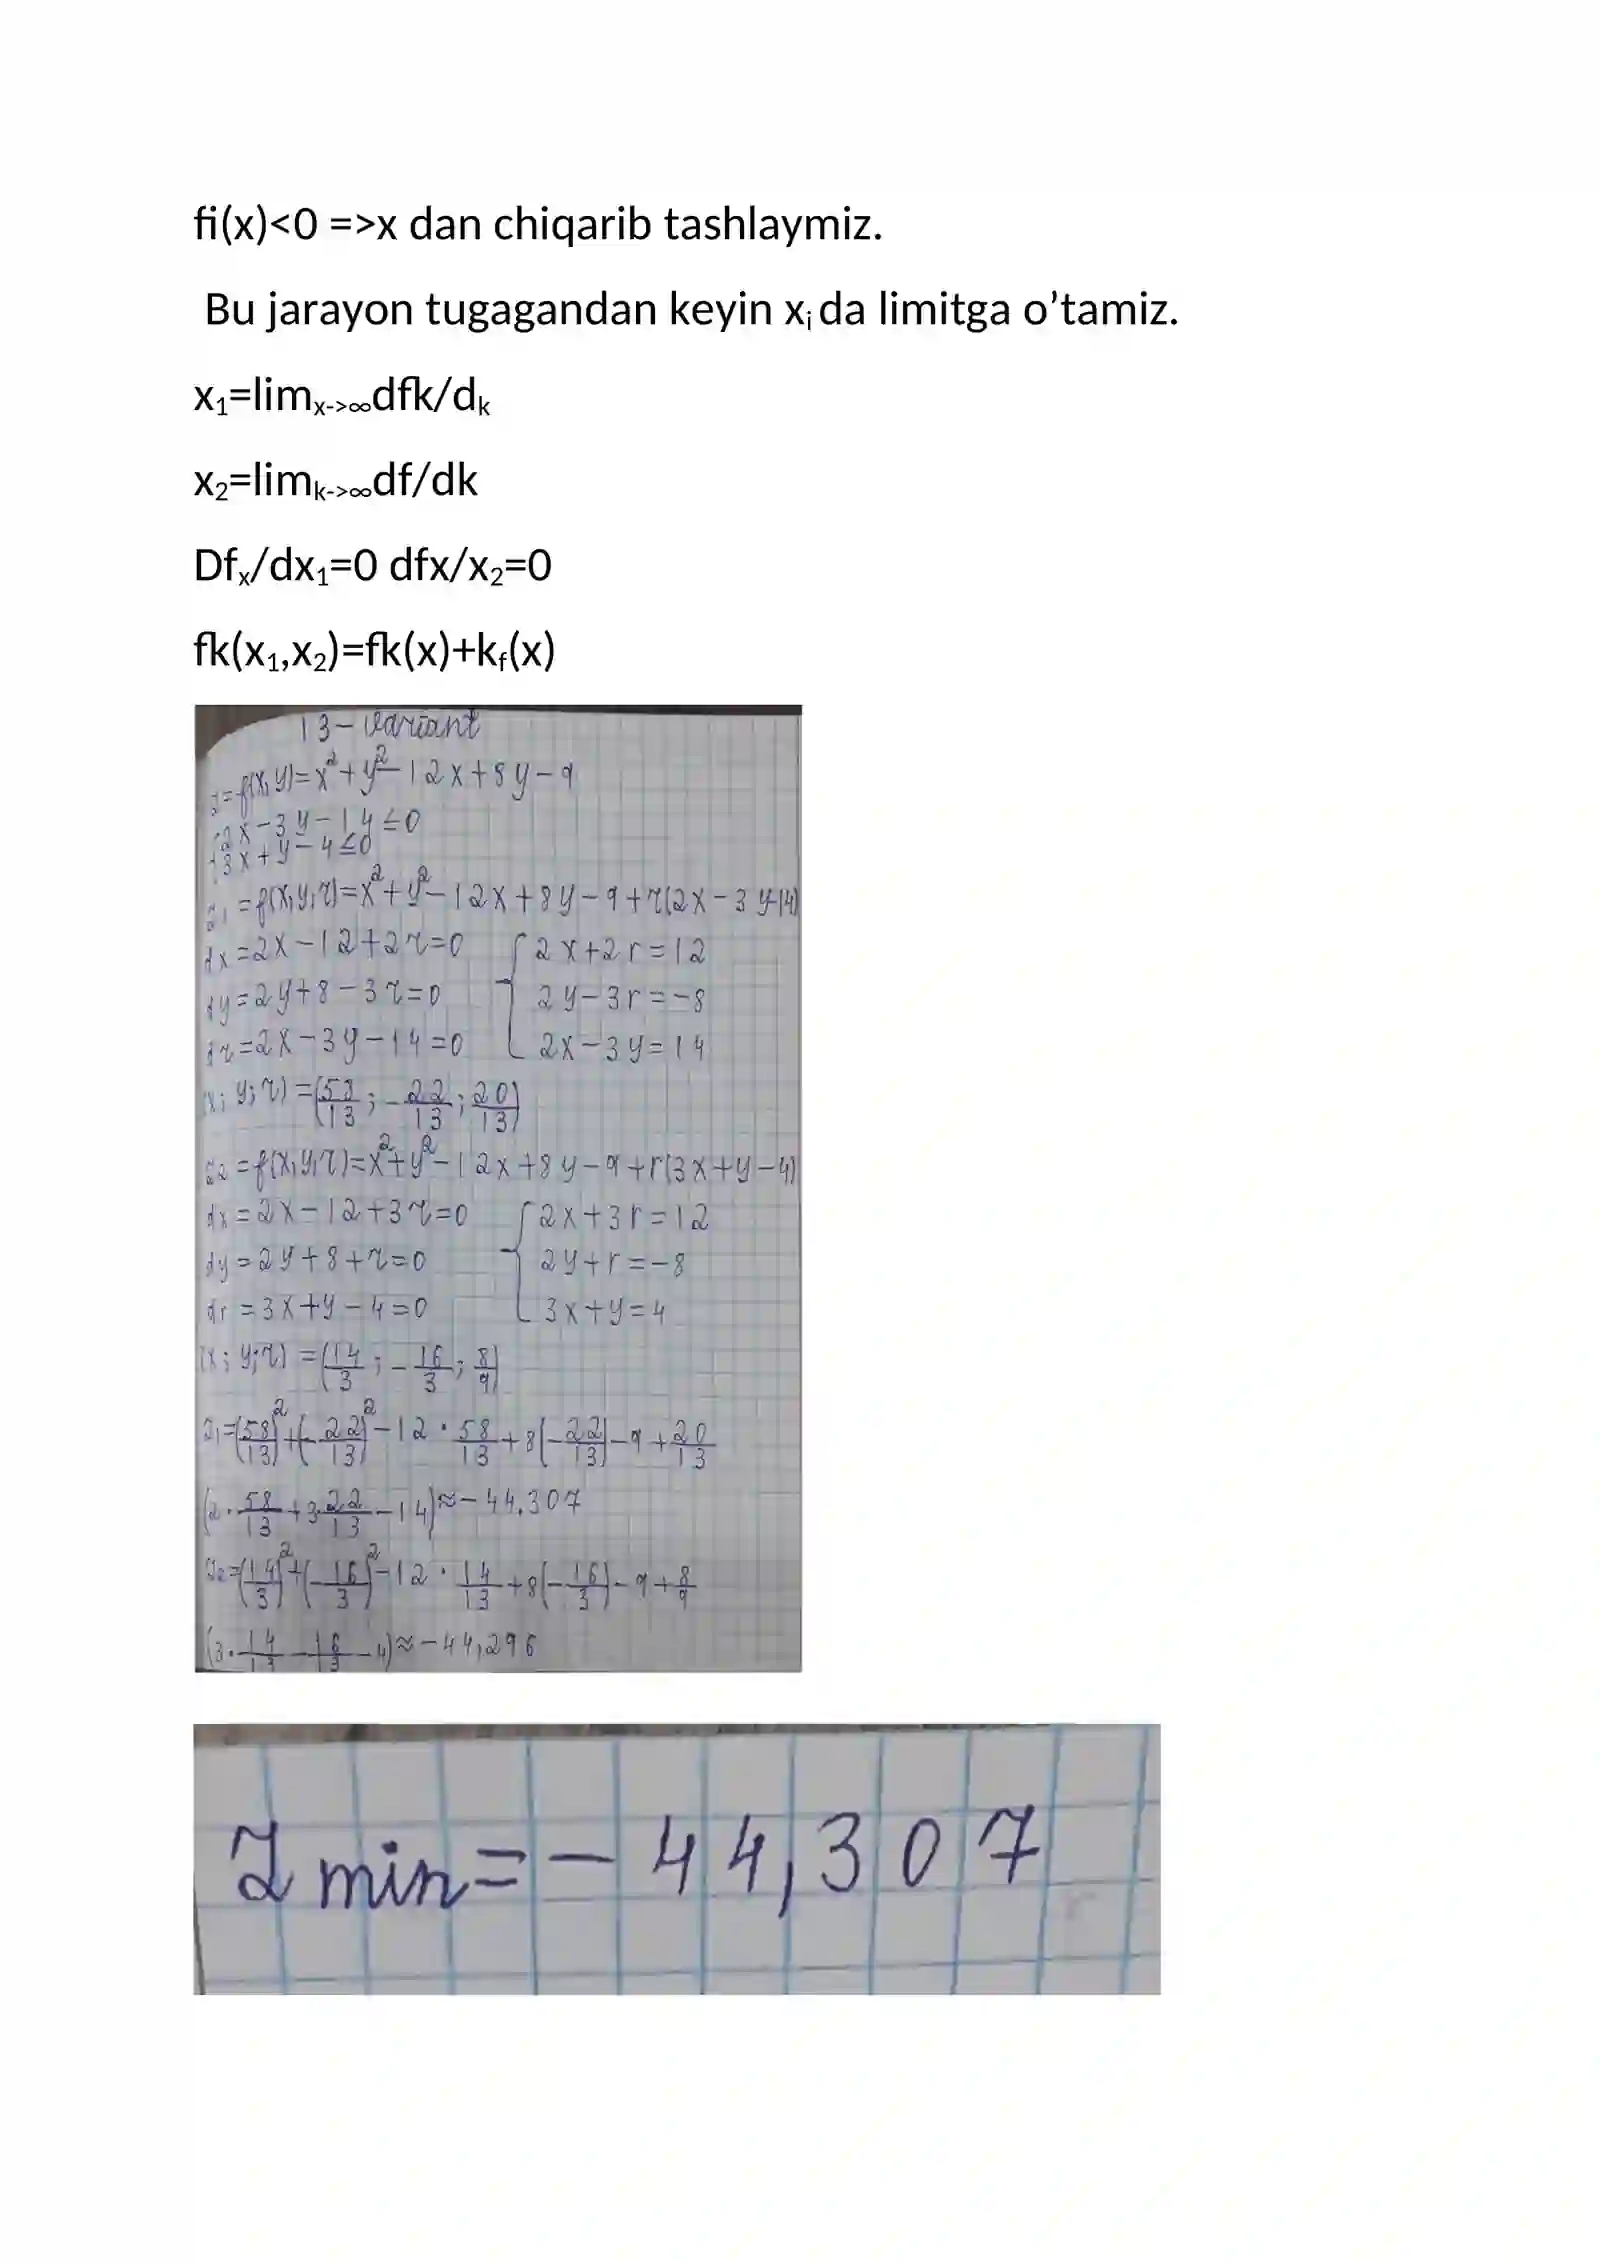 fi(x)<0 =>x dan chiqarib tashlaymiz.
Bu jarayon tugagandan keyin xi da limitga o’tamiz.
x1=limx->∞dfk/dk
x2=limk->∞df/dk
Dfx/dx1=0 dfx/x2=0
fk(x1,x2)=fk(x)+kf(x)
13-variant
z=f(x,y)=x²+y²-12x+8y-9
{2x-3y-14≤0
{3x+y-4≤0
z1=f(x,y,r)=x²+y²-12x+8y-9+r(2x-3y-14)
dx=2x-12+2r=0 {2x+2r=12
dy=2y+8-3r=0 2y-3r=-8
dr=2x-3y-14=0 2x-3y=14
(x; y; r)=(58/13; -22/13; 20/13)
z2=f(x,y,r)=x²+y²-12x+8y-9+r(3x+y-4)
dx=2x-12+3r=0 {2x+3r=12
dy=2y+8+r=0 2y+r=-8
dr=3x+y-4=0 3x+y=4
(x; y; r)=(14/3; -16/3; 8/9)
z1=(58/13)²+(-22/13)²-12·58/13+8(-22/13)-9+20/13
(2·58/13+3·22/13-14)≈-44,307
z2=(14/3)²+(-16/3)²-12·14/13+8(-16/3)-9+8/9
(3·14/13-16/3-4)≈-44,296
Zmin=-44,307